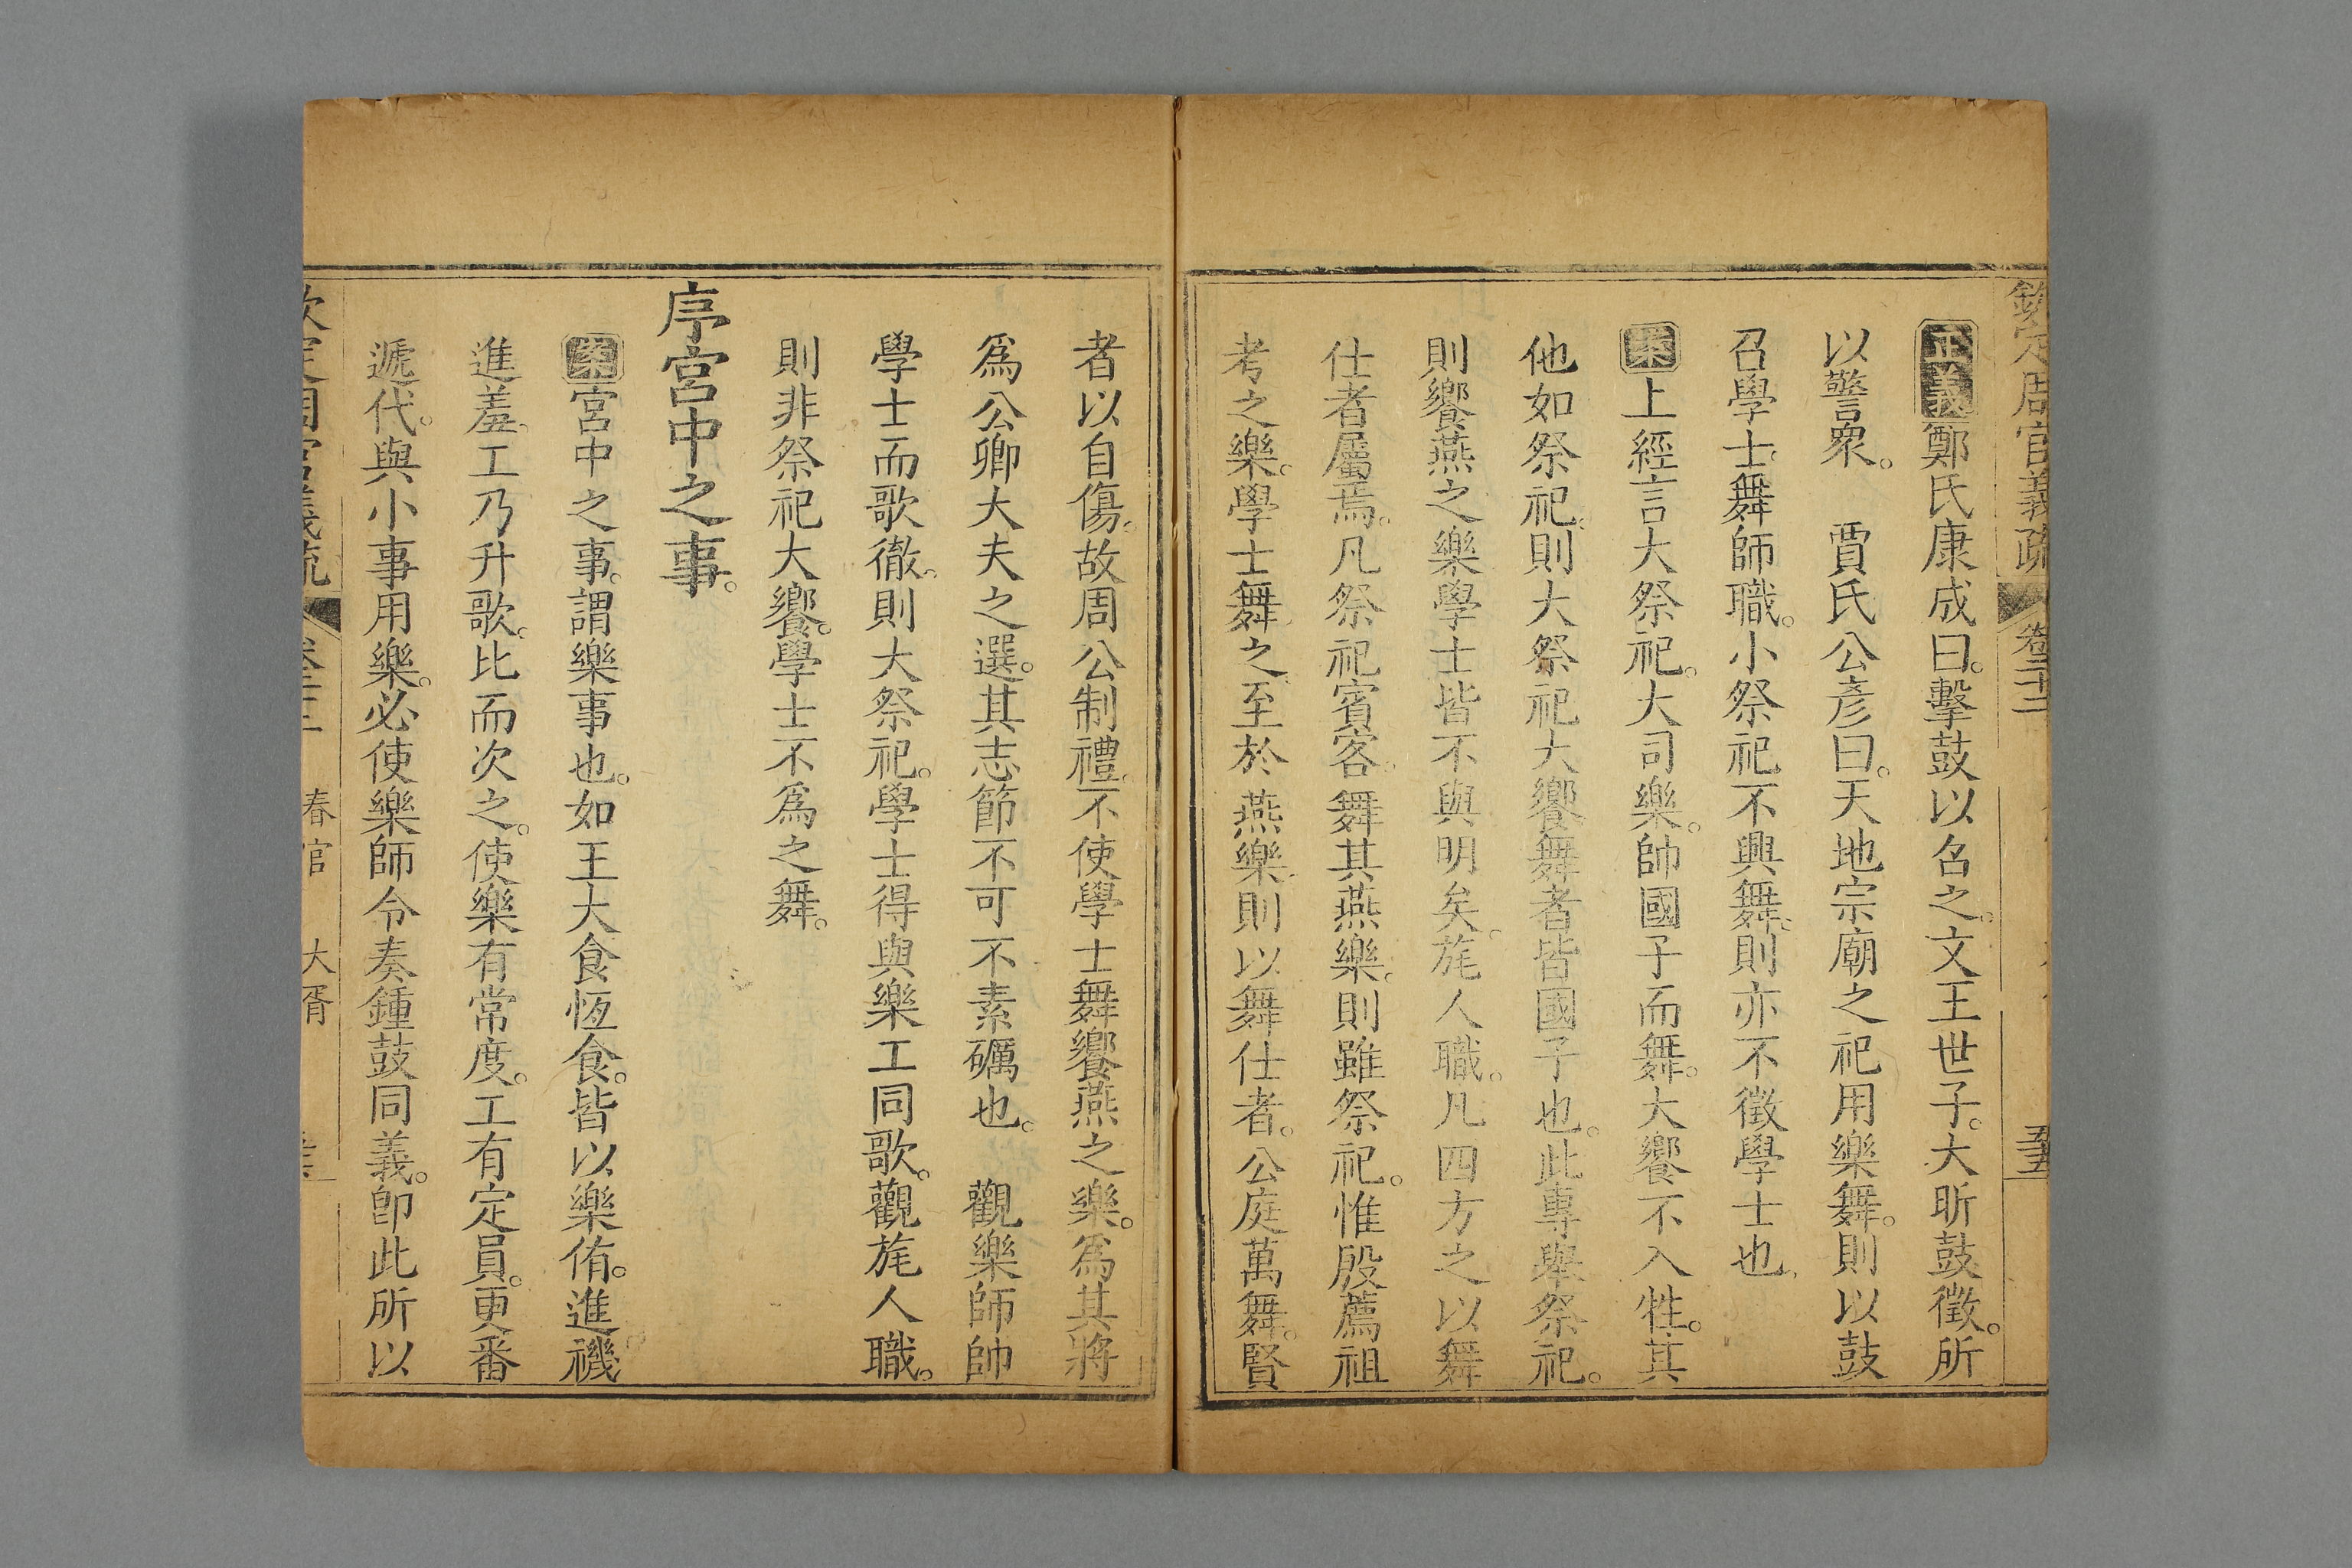 欽定周官義疏 卷二十二 五五
正義鄭氏康成曰。擊鼓以召之。文王世子。大昕鼓徵。所
以警衆。 賈氏公彥曰。天地宗廟之祀用樂舞。則以鼓
召學士。舞師職。小祭祀不興舞。則亦不徵學士也。
案上經言大祭祀。大司樂。帥國子而舞。大饗不入牲。其
他如祭祀。則大祭祀大饗舞者皆國子也。此專舉祭祀。
則饗燕之樂學士皆不與明矣。旄人職。凡四方之以舞
仕者屬焉。凡祭祀賓客。舞其燕樂。則雖祭祀。惟殷薦祖
考之樂。學士舞之。至於燕樂。則以舞仕者。公庭萬舞。賢
者以自傷。故周公制禮。不使學士舞饗燕之樂。爲其將
爲公卿大夫之選。其志節不可不素礪也。 觀樂師帥
學士而歌徹。則大祭祀。學士得與樂工同歌。觀旄人職。
則非祭祀大饗。學士不爲之舞。
序宮中之事。
案宮中之事。謂樂事也。如王大食恆食。皆以樂侑。進禨
進羞。工乃升歌。比而次之。使樂有常度。工有定員。更番
遞代。與小事用樂。必使樂師令奏鍾鼓同義。卽此所以
欽定周官義疏 春官 大胥